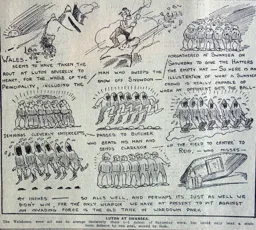 WALES-
SEEMS TO HAVE TAKEN THE
ROUT AT LUTON SEVERELY TO
HEART, FOR THE WHOLE OF THE
PRINCIPALITY, INCLUDING THE
MAN WHO SWEEPS THE
SNOW OFF SNOWDON -
FOREGATHERED AT SWANSEA ON
SATURDAY TO GIVE THE HATTERS
THE EMPTY HAT - SO HERE IS AN
ILLUSTRATION OF WHAT A SWANSEA
CROWD IS REALLY CAPABLE OF
WHEN AN OPPONENT GETS THE BALL
JENNINGS CLEVERLY INTERCEPTS,
PASSES TO BUTCHER
WHO BEATS HIS MAN AND
SEEING CLARK
UP THE FIELD TO CENTRE TO
REID, WHO MISSES
BY INCHES
SO ALLS WELL, AND PERHAPS ITS JUST AS WELL WE
DIDN'T WIN FOR THE ONLY WEAPON WE HAVE AT PRESENT TO PIT AGAINST
AN INVADING FORCE IS THE OLD TANK IN WARDOWN PARK
LUTON AT SWANSEA.